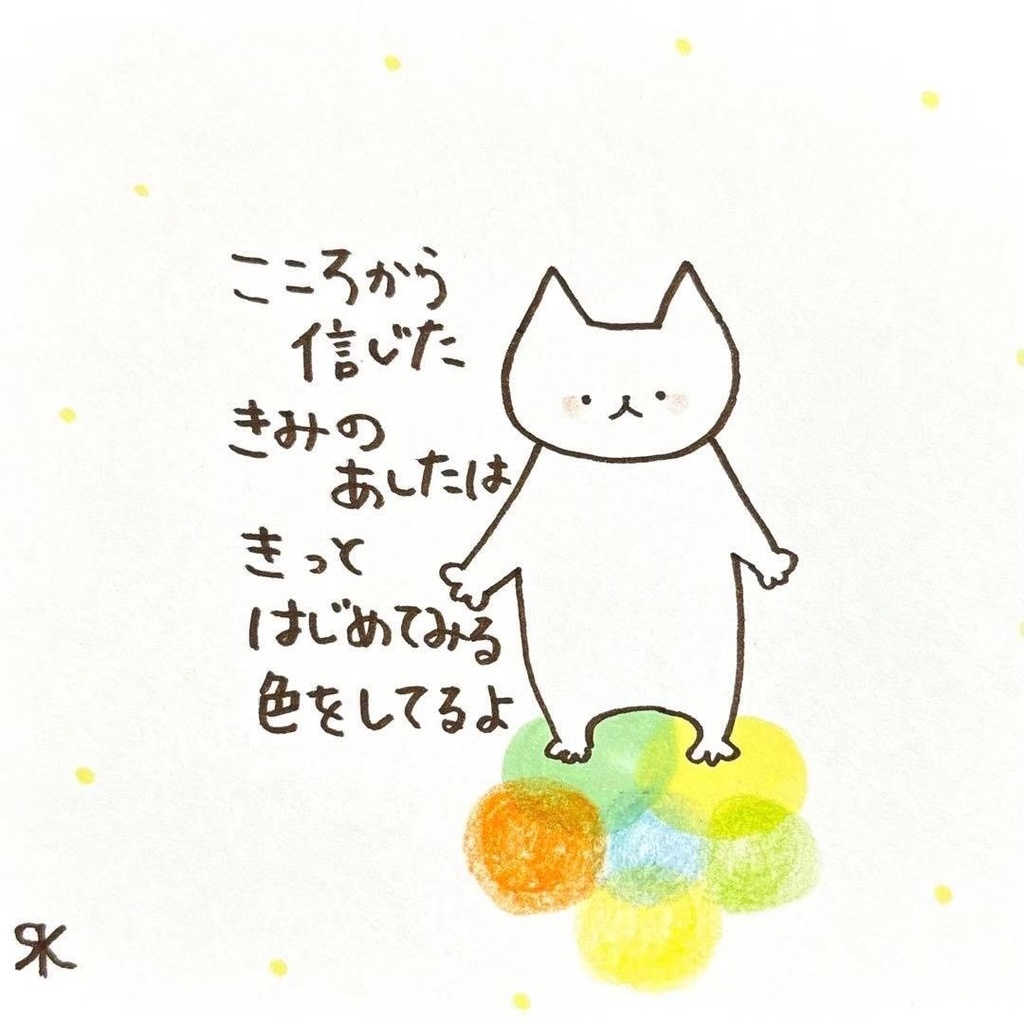 こころから
信じた
きみの
あしたは
きっと
はじめてみる
色をしてるよ